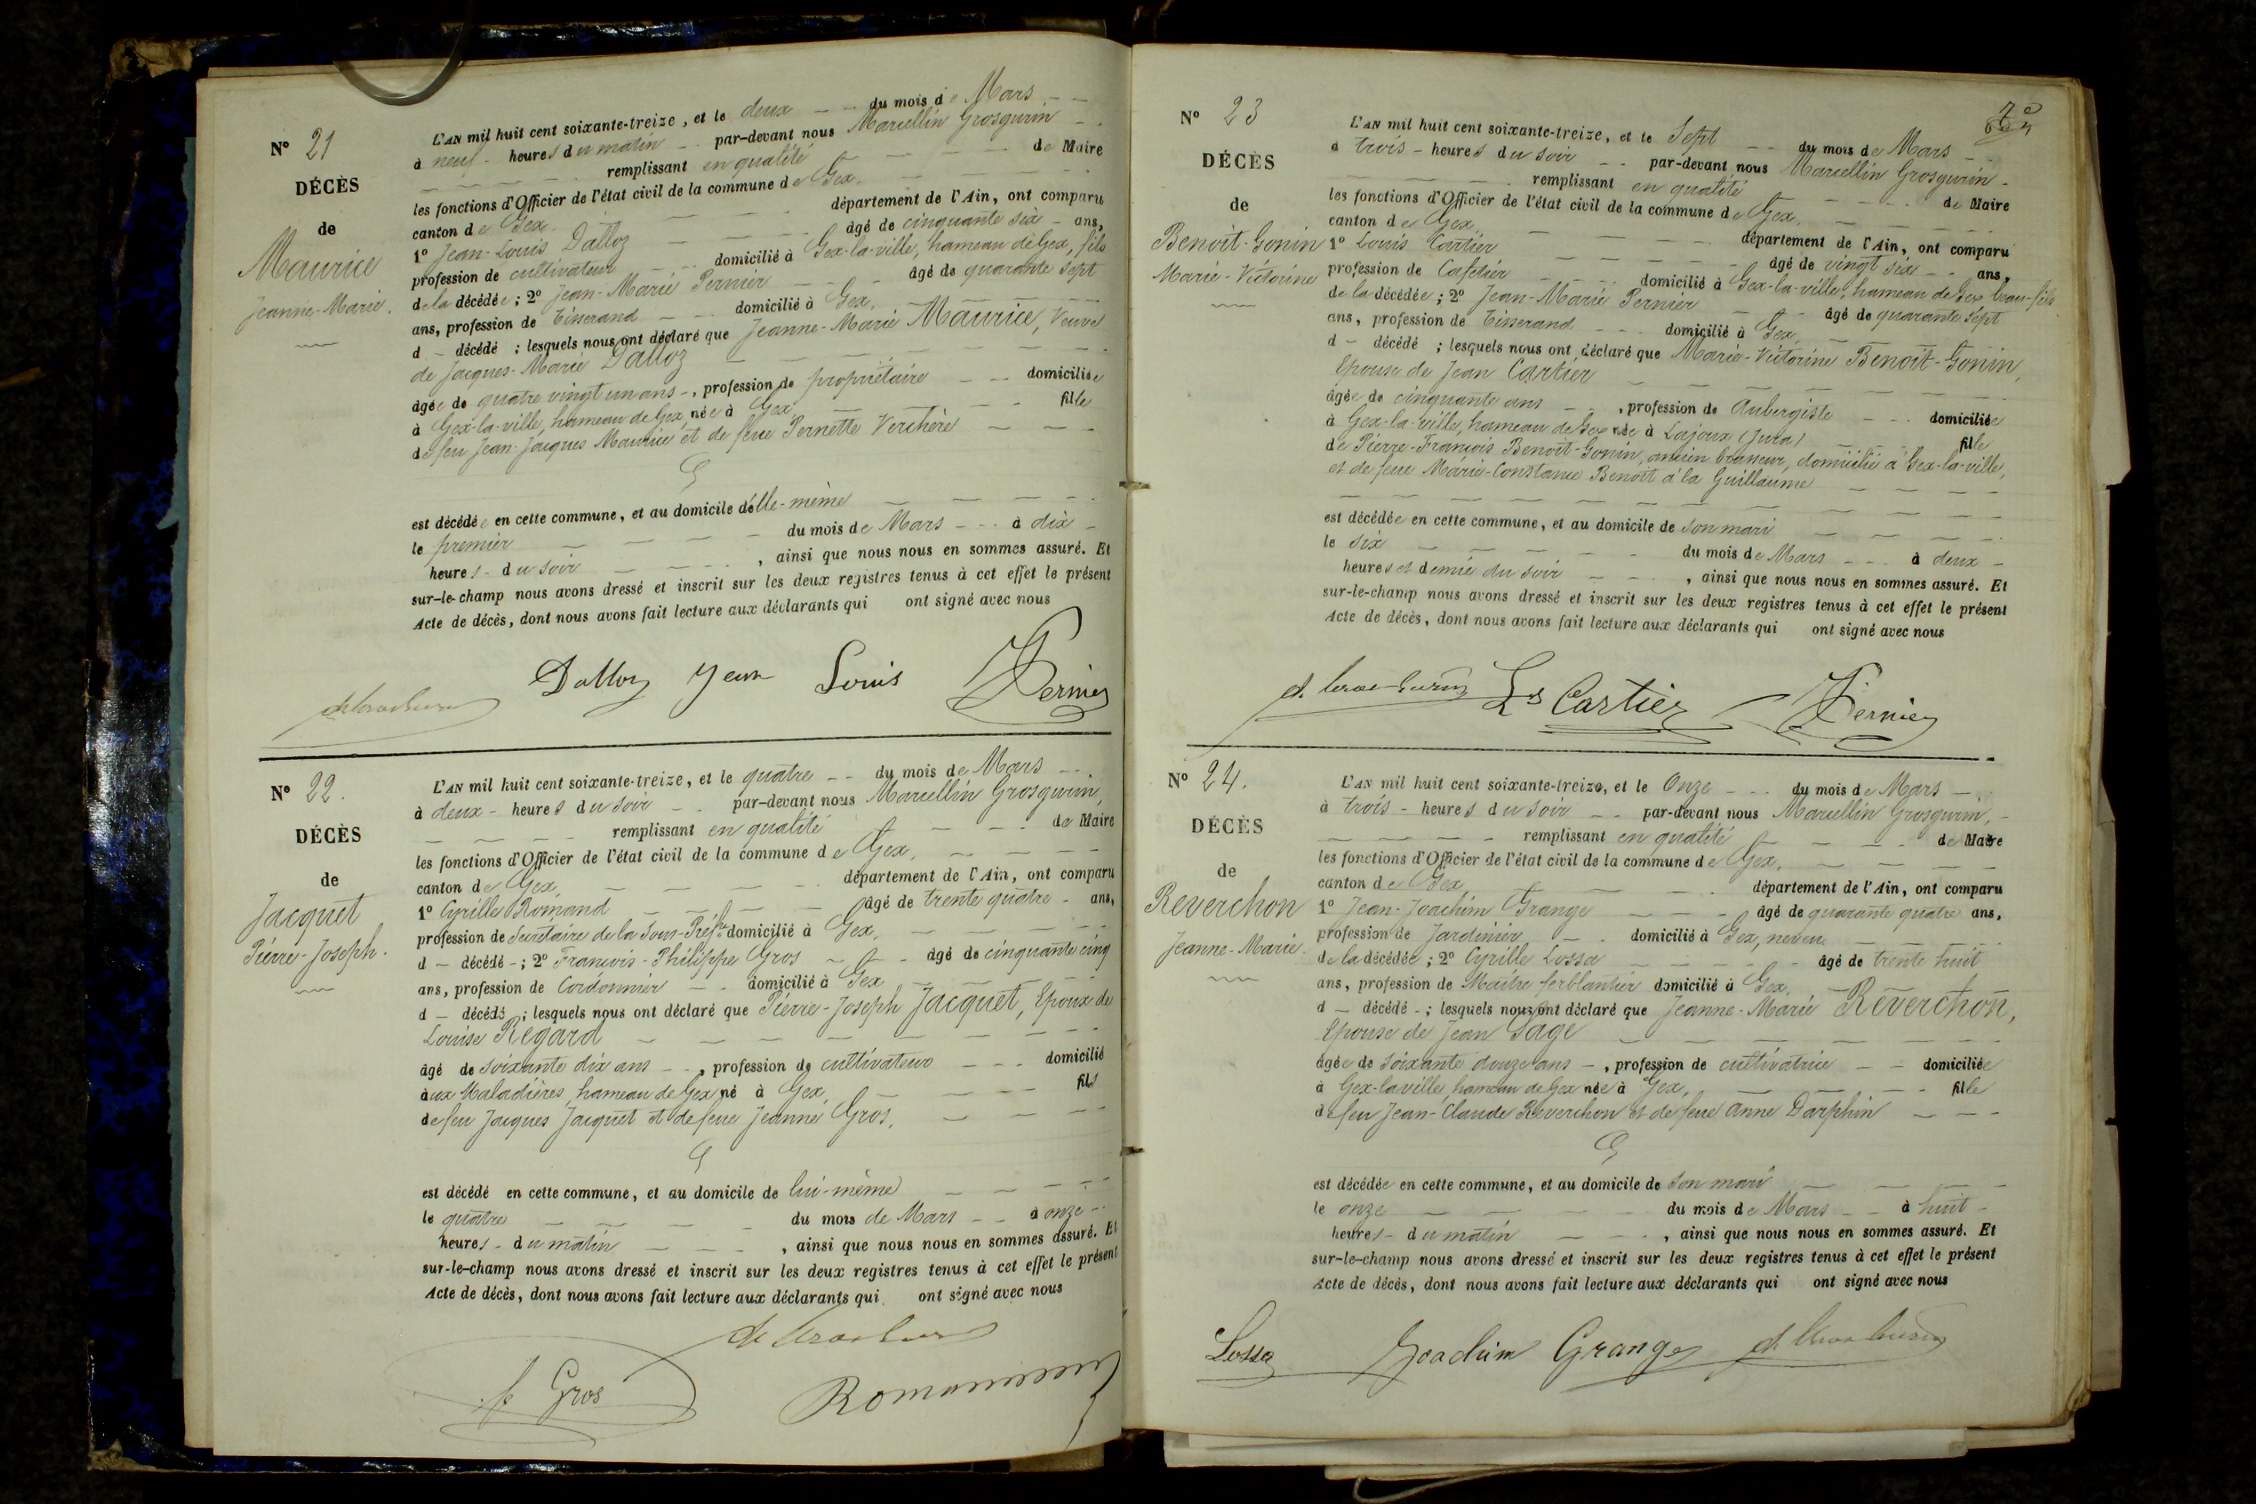 N° 21
DÉCÈS
de
Maurice
Jeanne-Marie.
L'AN mil huit cent soixante-treize, et le deux du mois de Mars
à neuf heures du matin par-devant nous Marcellin Grosgurin
remplissant en qualité de Maire
les fonctions d'Officier de l'état civil de la commune de Gex.
canton de Gex. département de l'Ain, ont comparu
1° Jean-Louis Dalloz âgé de cinquante six ans,
profession de cultivateur domicilié à Gex-la-ville, hameau de Gex, fils
de la décédée ; 2° Jean-Marie Pernier âgé de quarante sept
ans, profession de Tisserand domicilié à Gex.
d décédé ; lesquels nous ont déclaré que Jeanne-Marie Maurice, Veuve
de Jacques-Marie Dalloz
âgée de quatre vingt un ans, profession de propriétaire domiciliée
à Gex-la-ville, hameau de Gex, née à Gex, fille
de feu Jean-Jacques Maurice et de feue Pernette Verchère
est décédée en cette commune, et au domicile d'elle-même
le premier du mois de Mars à dix
heures du soir, ainsi que nous nous en sommes assuré. Et
sur-le-champ nous avons dressé et inscrit sur les deux registres tenus à cet effet le présent
Acte de décès, dont nous avons fait lecture aux déclarants qui ont signé avec nous
Dalloz Jean Louis Pernier
N° 22.
DÉCÈS
de
Jacquet
Pierre-Joseph.
L'AN mil huit cent soixante-treize, et le quatre du mois de Mars
à deux heures du soir par-devant nous Marcellin Grosgurin,
remplissant en qualité de Maire
les fonctions d'Officier de l'état civil de la commune de Gex.
canton de Gex, département de l'Ain, ont comparu
1° Cyrille Romand âgé de trente quatre ans,
profession de Secrétaire de la Sous-Préfre domicilié à Gex,
d décédé ; 2° François-Philippe Gros âgé de cinquante cinq
ans, profession de Cordonnier domicilié à Gex
d décédé ; lesquels nous ont déclaré que Pierre-Joseph Jacquet, Epoux de
Louise Regard
âgé de soixante dix ans, profession de cultivateur domicilié
aux Maladières, hameau de Gex né à Gex, fils
de feu Jacques Jacquet et de feue Jeanne Gros,
est décédé en cette commune, et au domicile de lui-même
le quatre du mois de Mars à onze
heures du matin, ainsi que nous nous en sommes assuré. Et
sur-le-champ nous avons dressé et inscrit sur les deux registres tenus à cet effet le présent
Acte de décès, dont nous avons fait lecture aux déclarants qui ont signé avec nous
Gros
N° 23
DÉCÈS
de
Benoit-Gonin
Marie-Victorine
L'AN mil huit cent soixante-treize, et le Sept du mois de Mars
à trois heures du soir par-devant nous Marcellin Grosgurin
remplissant en qualité de Maire
les fonctions d'Officier de l'état civil de la commune de Gex.
canton de Gex. département de l'Ain, ont comparu
1° Louis Cartier âgé de vingt six ans,
profession de Cafetier domicilié à Gex-la-ville, hameau de Gex beau-fils
de la décédée ; 2° Jean-Marie Pernier âgé de quarante sept
ans, profession de Tisserand domicilié à Gex,
d décédé ; lesquels nous ont déclaré que Marie-Victorine Benoit-Gonin,
Epouse de Jean Cartier
âgée de cinquante ans, profession de Aubergiste domiciliée
à Gex-la-ville, hameau de Gex née à Lajoux (Jura) fille
de Pierre-François Benoit-Gonin, ancien brasseur, domicilié à Gex-la-ville,
et de feue Marie-Constance Benoit à la Guillaume
est décédée en cette commune, et au domicile de son mari
le six du mois de Mars à deux
heures et demie du soir, ainsi que nous nous en sommes assuré. Et
sur-le-champ nous avons dressé et inscrit sur les deux registres tenus à cet effet le présent
Acte de décès, dont nous avons fait lecture aux déclarants qui ont signé avec nous
Ls Cartier Pernier
N° 24.
DÉCÈS
de
Reverchon
Jeanne-Marie.
L'AN mil huit cent soixante-treize, et le Onze du mois de Mars
à trois heures du soir par-devant nous Marcellin Grosgurin,
remplissant en qualité de Maire
les fonctions d'Officier de l'état civil de la commune de Gex,
canton de Gex département de l'Ain, ont comparu
1° Jean-Joachim Grange âgé de quarante quatre ans,
profession de Jardinier domicilié à Gex, neveu
de la décédée ; 2° Cyrille Lossa âgé de trente huit
ans, profession de Maître ferblantier domicilié à Gex.
d décédé ; lesquels nous ont déclaré que Jeanne-Marie Reverchon,
Epouse de Jean Sage
âgée de soixante douze ans, profession de cultivatrice domiciliée
à Gex-la-ville, hameau de Gex née à Gex, fille
de feu Jean-Claude Reverchon et de feue Anne Darphin
est décédée en cette commune, et au domicile de son mari
le onze du mois de Mars à huit
heures du matin, ainsi que nous nous en sommes assuré. Et
sur-le-champ nous avons dressé et inscrit sur les deux registres tenus à cet effet le présent
Acte de décès, dont nous avons fait lecture aux déclarants qui ont signé avec nous
Lossa Joachim Grange